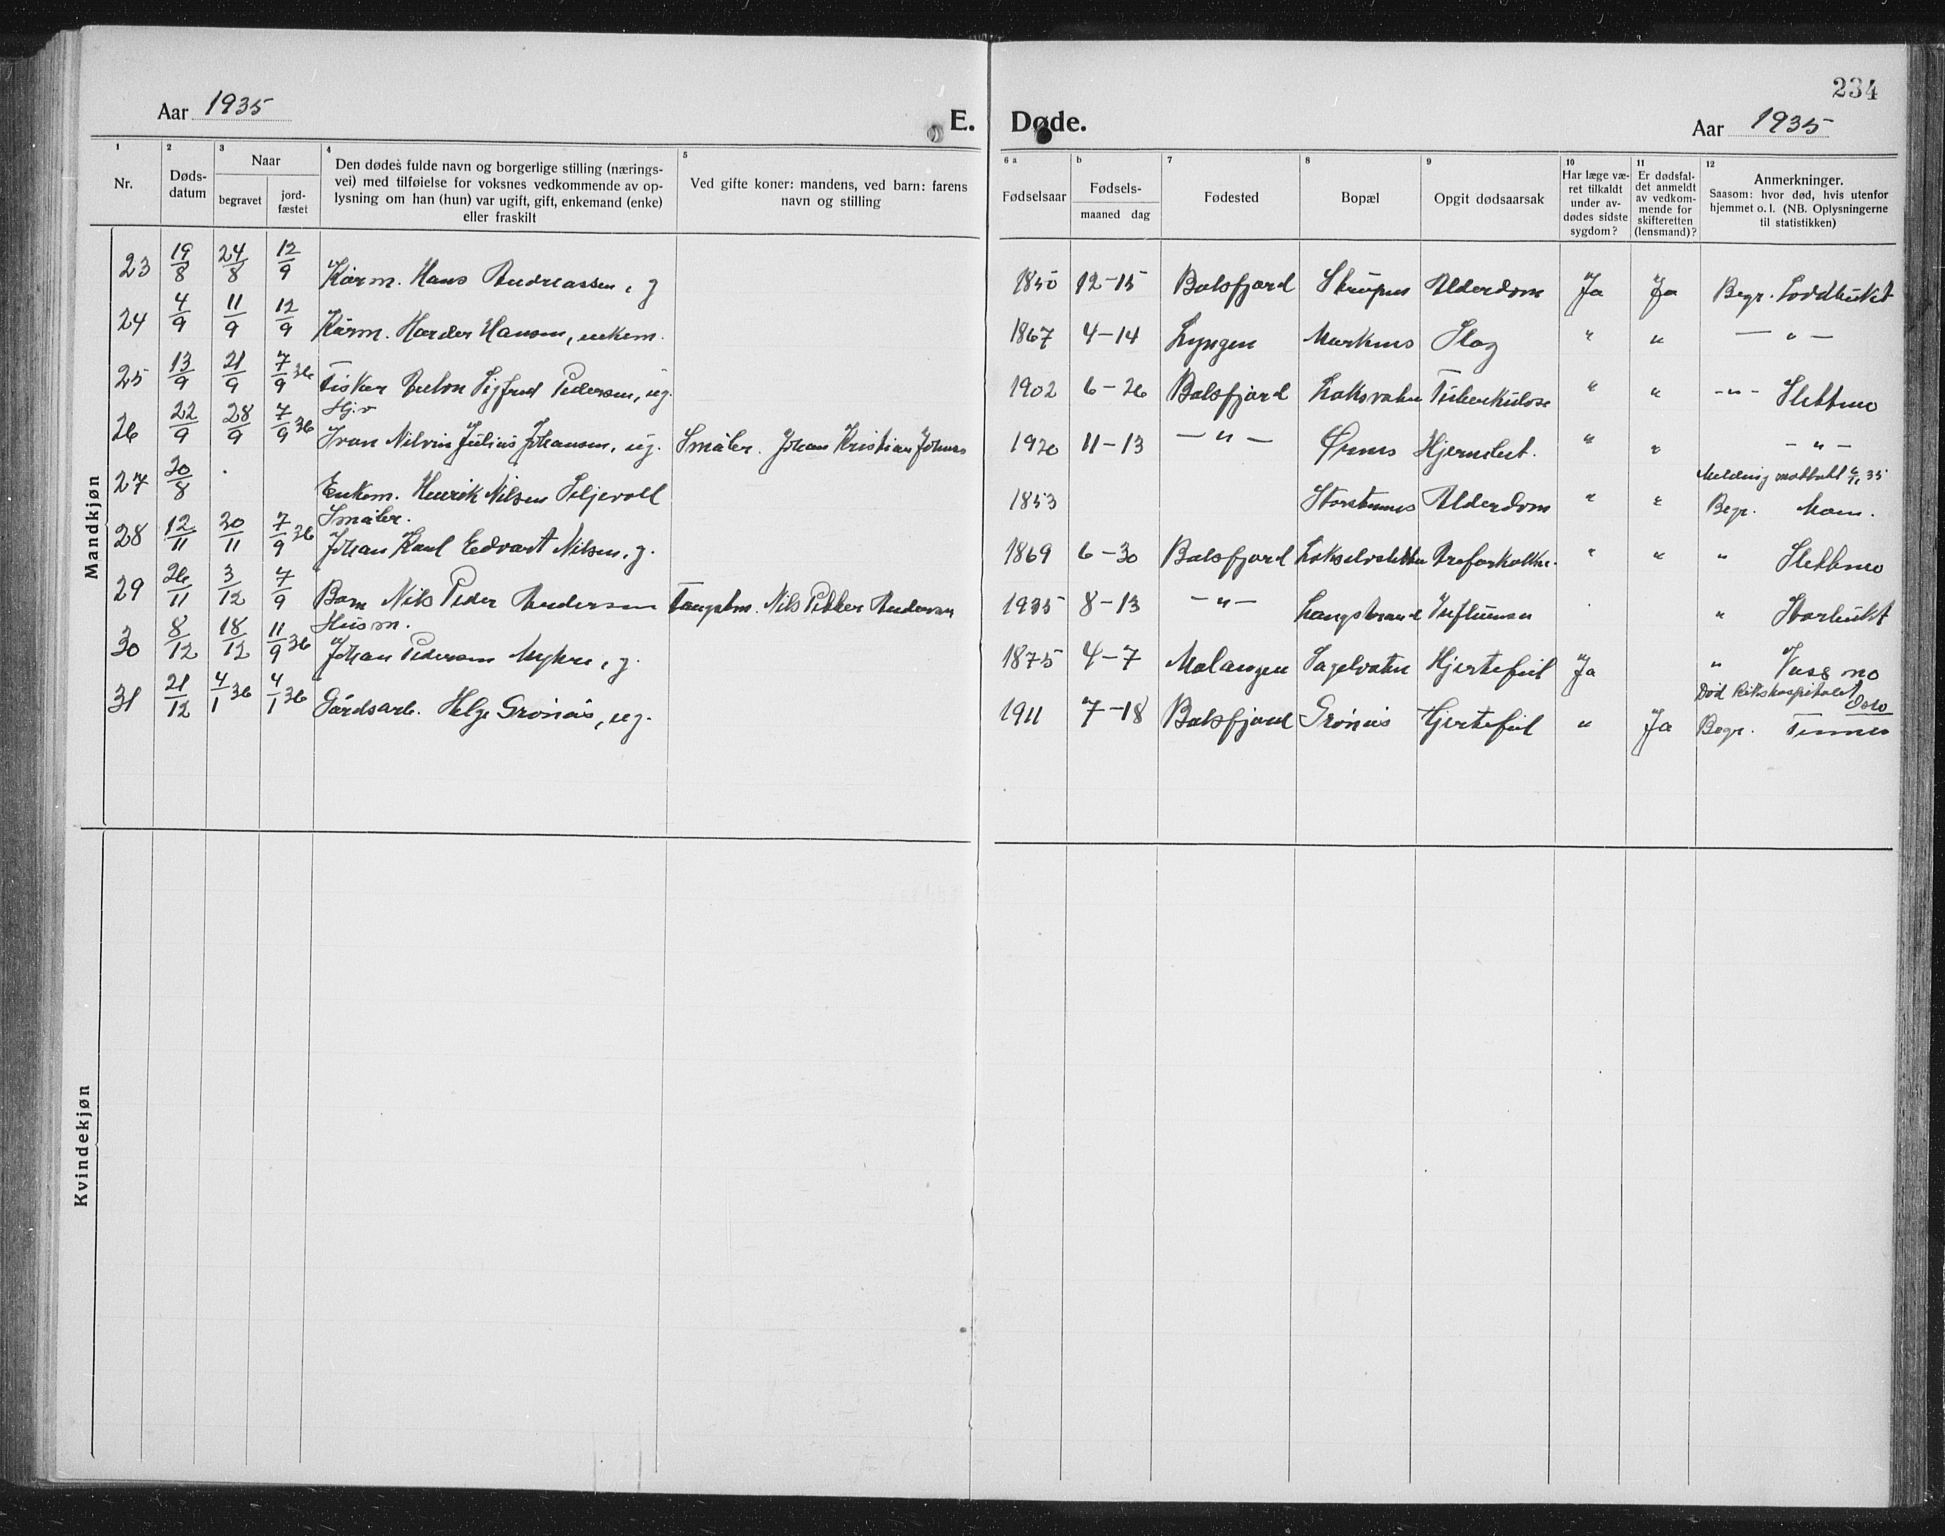 234
Aar 1935
E. Døde.
Aar 1935
1 2 3 4 5 6 a b 7 8 9 10 11 12
Nr.
Døds-
datum
Naar
begravet
jord-
fæstet
Den dødes fulde navn og borgerlige stilling (nærings-
vei) med tilføielse for voksnes vedkommende av op-
lysning om han (hun) var ugift, gift, enkemand (enke)
eller fraskilt
Ved gifte koner: mandens, ved barn: farens
navn og stilling
Fødselsaar
Fødsels-
maaned dag
Fødested
Bopæl
Opgit dødsaarsak
Har læge væ-
ret tilkaldt
under av-
dødes sidste
sygdom?
Er dødsfal-
det anmeldt
av vedkom-
mende for
skifteretten
(lensmand)?
Anmerkninger.
Saasom: hvor død, hvis utenfor
hjemmet o. l. (NB. Oplysningerne
til statistikken)
Mandkjøn
23 19/8 24/8 12/9 Kårm. Hans Andreassen, g 1850 12-15 Balsfjord Alderdom Ja Ja Begr. Loddbukt
24 4/9 11/9 12/9 Kårm. Hansen, enkem. 1867 4-14 Lyngen Markenes Slag " " — " —
25 13/9 21/9 7/9 36 Fisker Anton Sigfred Pedersen, ug. 1902 6-26 Balsfjord Laksvatn Tuberkulose " " -"- Slettmo
Hj.v
26 22/9 28/9 7/9 36 Ivan Nilvin Julius Johansen, ug. Småbr. Johan Kristian 1920 11-13 — " — Ørnes " " - " -
Melding mottatt 35
27 20/8 Enkem. Henrik Nilsen Seljevoll 1853 Storsteinnes Alderdom " " Begr. Moen.
Småbr.
28 12/11 20/11 7/9 36 Johan Karl Edvart Nilsen, g. 1869 6-30 Balsfjord " " " Slettmo
29 26/11 3/12 7/9 Barn Nils Peder Andersen Fangstm. Nils Petter Andersen 1935 8-13 — " — Influensa " Storbukt
Husm.
30 8/12 18/12 11/9 36 Johan Pedersen Myhre, g. 1875 4-7 Malangen Sagelvatn Hjertefeil Ja "
Død Rikshospitalet
Oslo
31 21/12 4/1 36 4/1 36 Gårdsarb. Helge Grønås, ug. 1911 7-18 Balsfjord Grønås Hjertefeil " Ja Begr. Tennes
Kvindekjøn